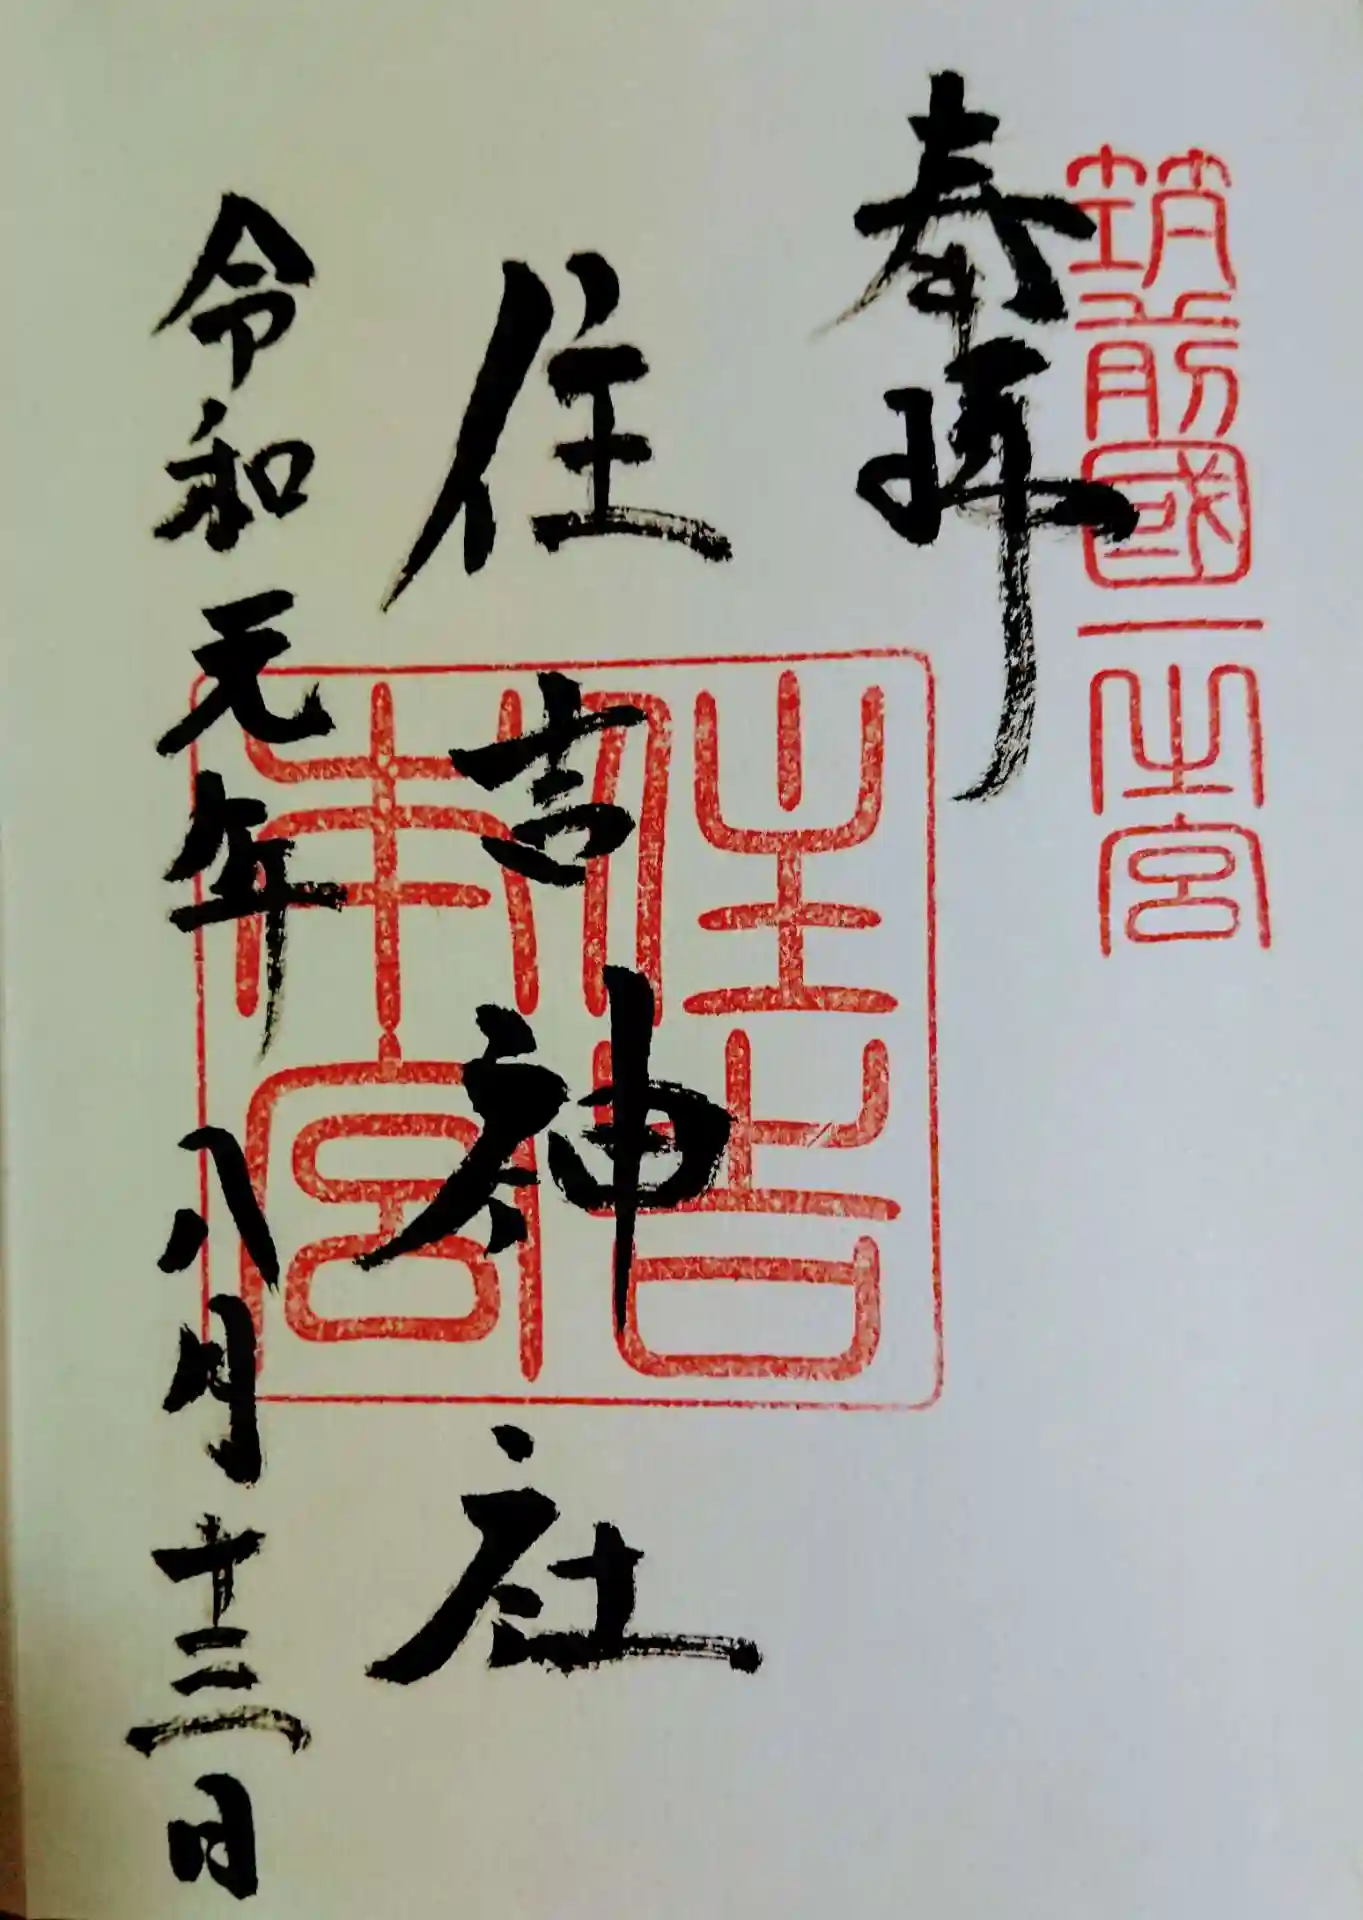 筑前國一之宮
奉拝
住吉神社
住吉
本宮
令和元年八月十三日